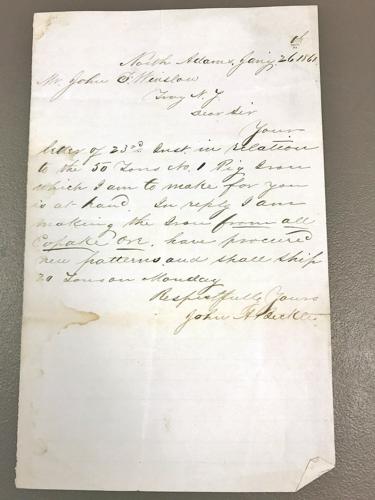 North Adams, Jany. 26 1861
Mr John F. Winslow
Troy N.Y.
Dear Sir
Your
letter of 23rd Inst. in relation
to the 50 Tons No. 1 Pig Iron
which I am to make for you
is at hand. In reply I am
making the Iron from all
Copake Ore. have procured
new patterns and shall ship
20 Tons on Monday
Respectfully Yours
John A. Beckle